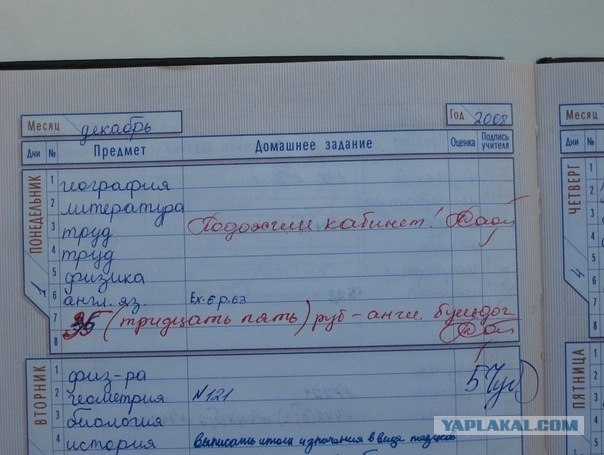 Месяц декабрь Год 2008
Дни № Предмет Домашнее задание Оценка Подпись учителя
ПОНЕДЕЛЬНИК
1
1 география
2 литература
3 труд Подожгли кабинет!
4 труд
5 физика
6 англ. яз. Ex. 6 p. 63
7 35 (тридцать пять) руб - англ. бульдог
8
ВТОРНИК
1 физ-ра 5
2 геометрия N 121
3 биология
4 история выписать итоги и значения в виде
Месяц
Дни №
ЧЕТВЕРГ
4
1
2
3
4
5
6
7
8
ПЯТНИЦА
1
2
3
4
YAPLAKAL.COM